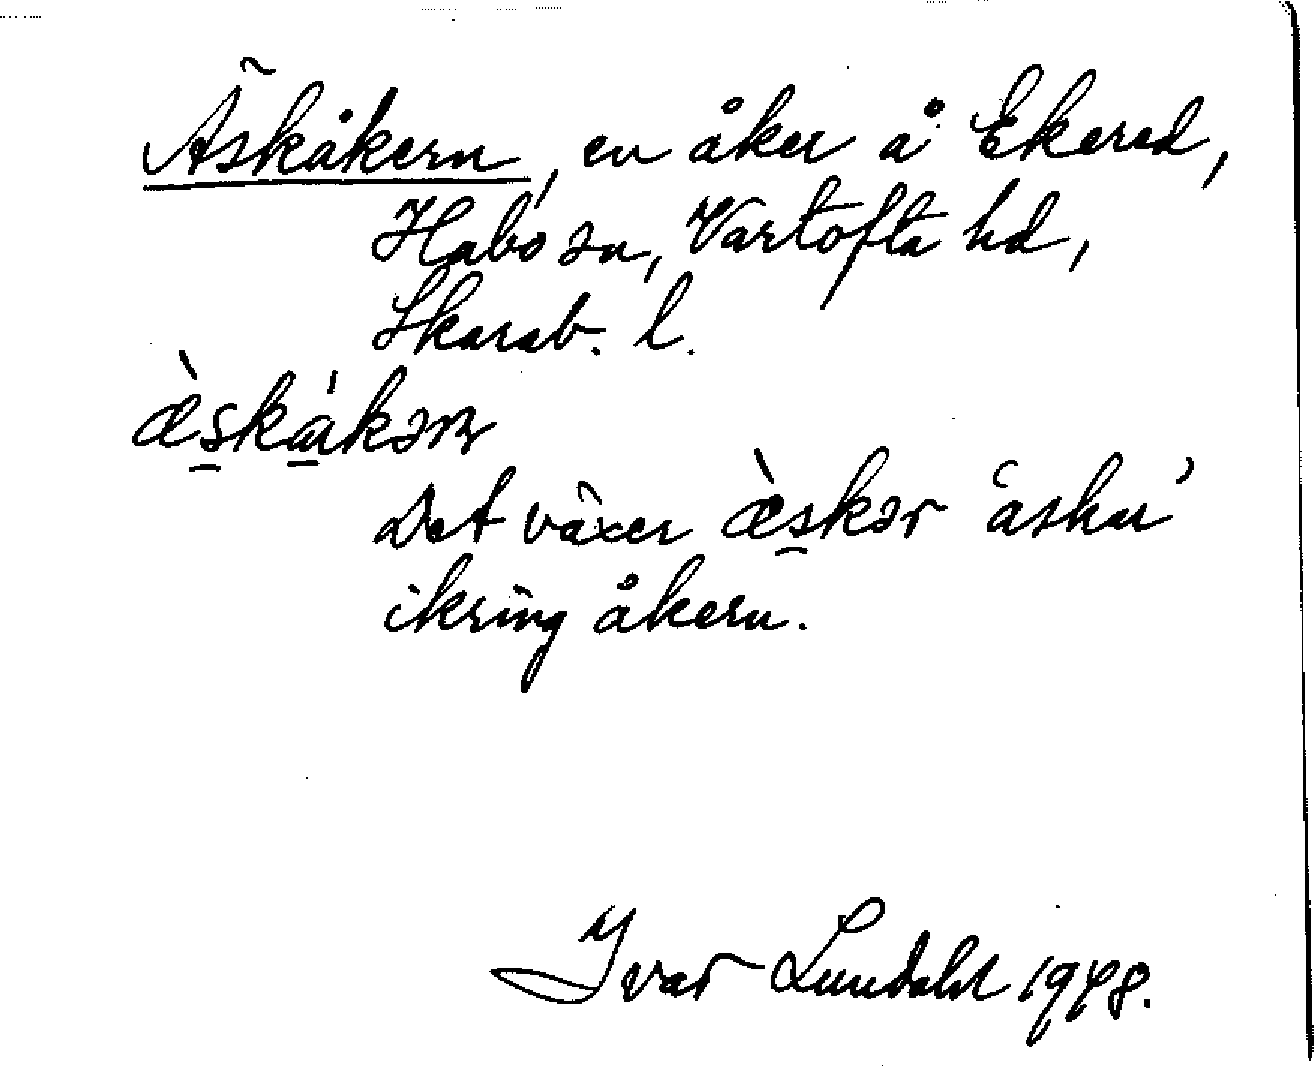 Äskåkern, en åker å Ekered,
Habo sn, Vartofta hd,
Skarab. l.
æ̀skákəɳ
Det växer æ̀skər 'askar'
ikring åkern.
Ivar Lundahl 1948.